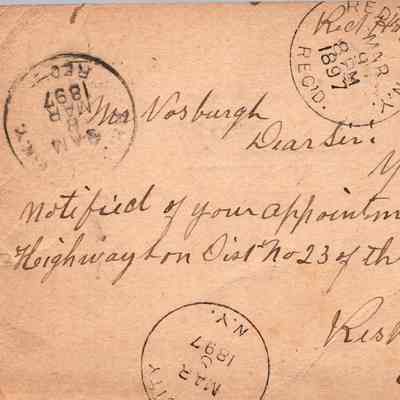 Red
Mr Vosburgh
Dear Sir:
Y
Notified of your appointm
Highway ton Dist No 23 of th
Resp
RED
MAR
9
8 AM
1897
N.Y.
REC'D.
REC'D
1897
MAR
8
N.Y.
N.Y.
1897
MAR
ITY